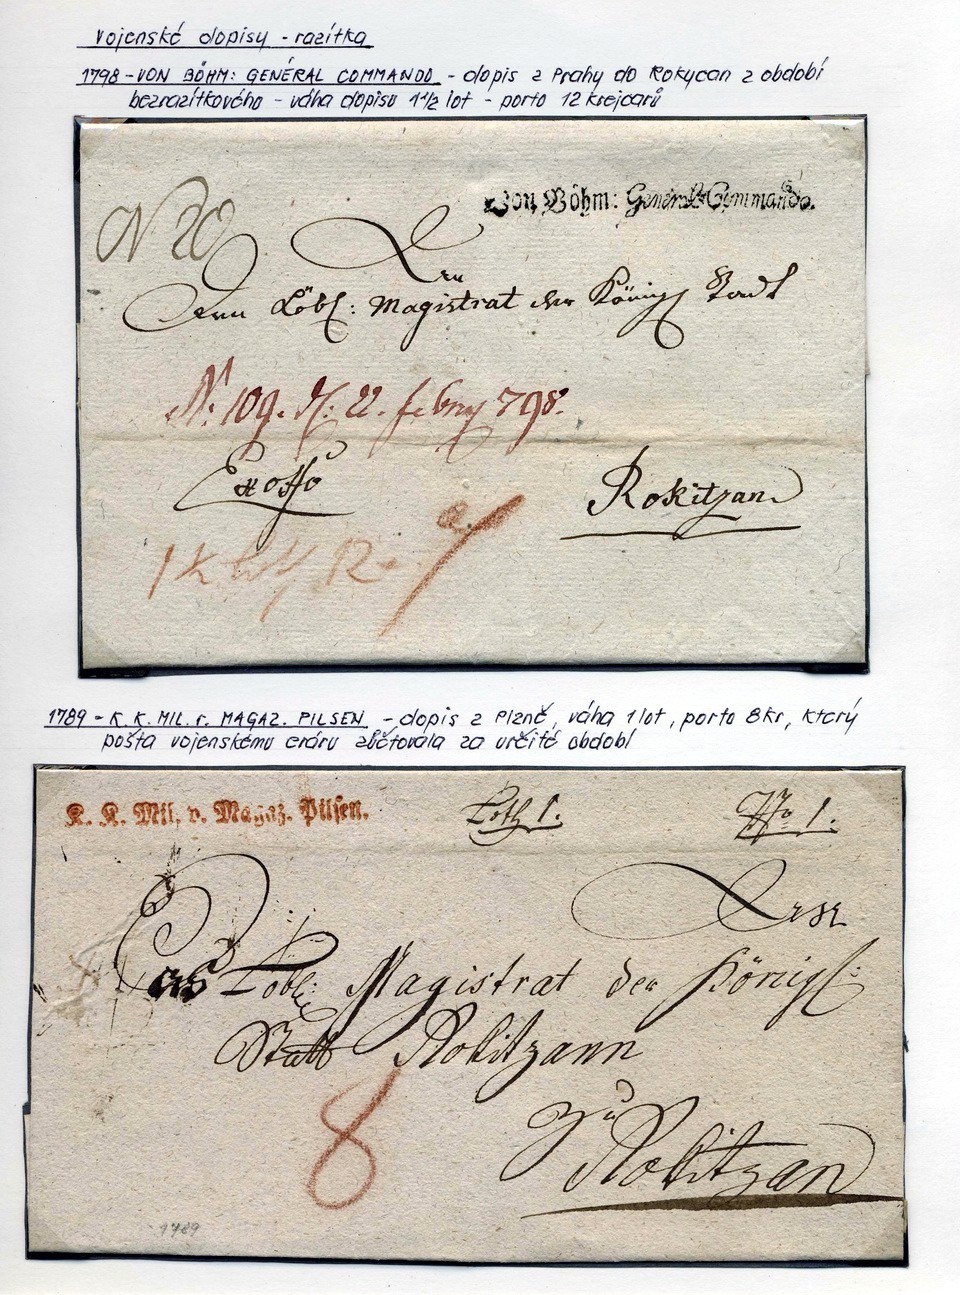 vojenské dopisy - razítka
1798 - VON BÖHM: GENÉRAL COMMANDO - dopis z Prahy do Rokycan z období
bezrazítkového - váha dopisu 1 1/2 lot - porto 12 krejcarů
Von Böhm: General-Commando.
N 20
Dem Löbl: Magistrat der Königl Stadt
N: 109. 22. febry 798.
Exoffo
Rokitzan
12
1789 - K. K. MIL. r. MAGAZ. PILSEN - dopis z Plzně, váha 1 lot, porto 8 kr, který
pošta vojenskému eráru zúčtovala za určité období
K. K. Mil. v. Magaz. Pilsen.
Loth 1.
No 1.
Löbl: Magistrat der Königl:
Stadt Rokitzann
8
Zu
Rokitzan
1789